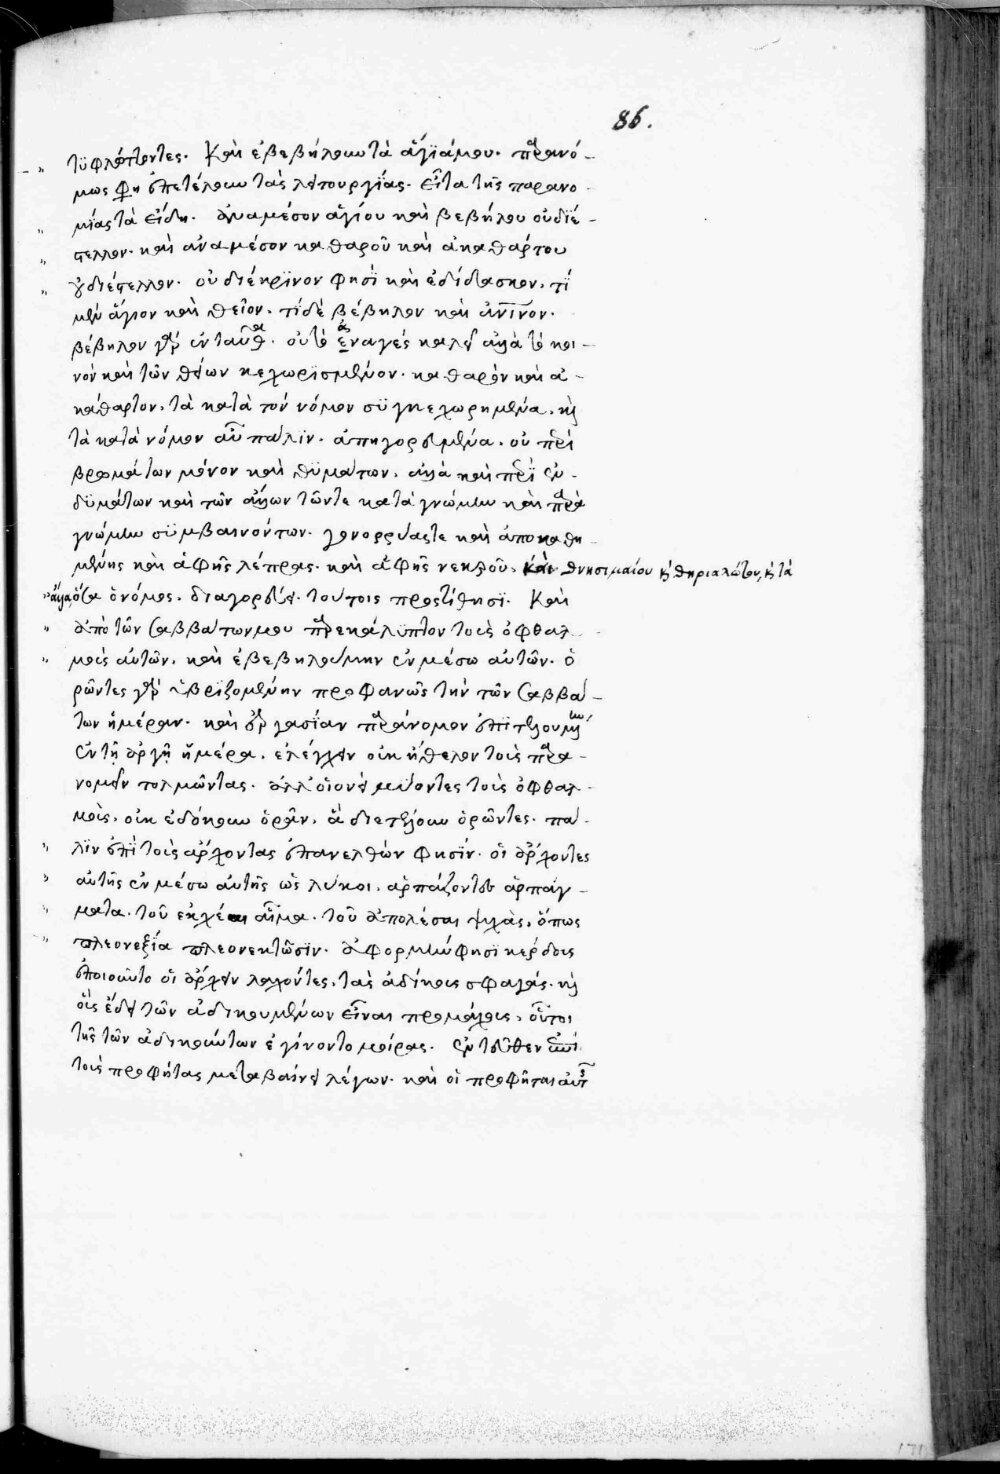 86.
τϋφλώττοντες. Καὶ ἐβεβήλουν τὰ ἅγϊά μου. παρανό-
μως φη ἐπετέλουν τὰς λειτουργίας. εἶτα τῆς παρανο
μίας τὰ εἴδη. ἀναμέσον ἁγίου καὶ βεβήλου οὐ διέ-
στελλον. καὶ ἀναμέσον καθαροῦ καὶ ἀκαθάρτου
οὐ διέστελλον. οὐ διέκρϊνον φησὶ καὶ ἐδίδασκον, τί
μὲν ἅγιον καὶ θεῖον. τί δὲ βέβηλον καὶ ἀνῖνον.
βέβηλον γὰρ ἐνταῦθα. οὐ τὸ ἐναγὲς καλεῖ ἀλλὰ τὸ κοι-
νὸν καὶ τῶν θείων κεχωρϊσμένον. καθαρὸν καὶ ἀ-
κάθαρτον, τὰ κατὰ τὸν νόμον συγκεχωρημένα, κὴ
τὰ κατὰ νόμον αὖ πάλϊν. ἀπηγορευμένα. οὐ περὶ
βρωμάτων μόνον καὶ θϋμάτων, ἀλλὰ καὶ περὶ ἐν-
δϋμάτων καὶ τῶν ἄλλων τῶν τε κατὰ γνώμην καὶ παρὰ
γνώμην σϋμβαινόντων. γονορρυοῦς τε καὶ ἀποκαθη-
μένης καὶ ἁφῆς λέπρας. καὶ ἁφῆς νεκροῦ. καὶ θνησιμαίου κ̀ θηριαλώτου, κ̀ τὰ
ἄλλα, ὅσα ὁ νόμος. διαγορεύει. τούτοις προστίθησϊ. Καὶ
ἀπὸ τῶν σαββάτων μου παρεκάλϋπτον τοὺς ὀφθαλ-
μοὺς αὐτῶν, καὶ ἐβεβηλούμην ἐν μέσω αὐτῶν. ὁ
ρῶντες γὰρ ὑβρϊζομένην προφανῶς τὴν τῶν σαββά-
των ἡμέραν. καὶ ἐργασίαν παράνομον ἐπϊτελουμένην
ἐν τῇ ἀργῇ ἡμέρα, ἐλέγχειν οὐκ ἤθελον τοὺς παρα-
νομεῖν τολμῶντας. ἀλλ' οἱονεὶ μύοντες τοὺς ὀφθαλ-
μοὺς, οὐκ ἐδόκουν ὁρᾶν, ἃ διετέλουν ὁρῶντες. πά-
λϊν ἐπὶ τοὺς ἄρχοντας ἐπανελθὼν φησϊν. οἱ ἄρχοντες
αὐτῆς ἐν μέσω αὐτῆς ὡς λύκοι. ἁρπάζοντες ἁρπάγ-
ματα. τοῦ ἐκχέαι αἷμα. τοῦ ἀπολέσαι ψυχὰς, ὅπως
πλεονεξία πλεονεκτῶσϊν. ἀφορμὴν φησϊ κέρδους
ἐποιοῦντο οἱ ἄρχειν λαχόντες, τὰς ἀδίκους σφαγάς. κὴ
οἷς ἔδει τῶν ἀδικουμένων εἶναι προμάχους, οὗτοι
τῆς τῶν ἀδικούντων ἐγίνοντο μοίρας. ἐντεῦθεν ἐπὶ
τοὺς προφήτας μεταβαίνει λέγων. καὶ οἱ προφῆται αὐτῆς